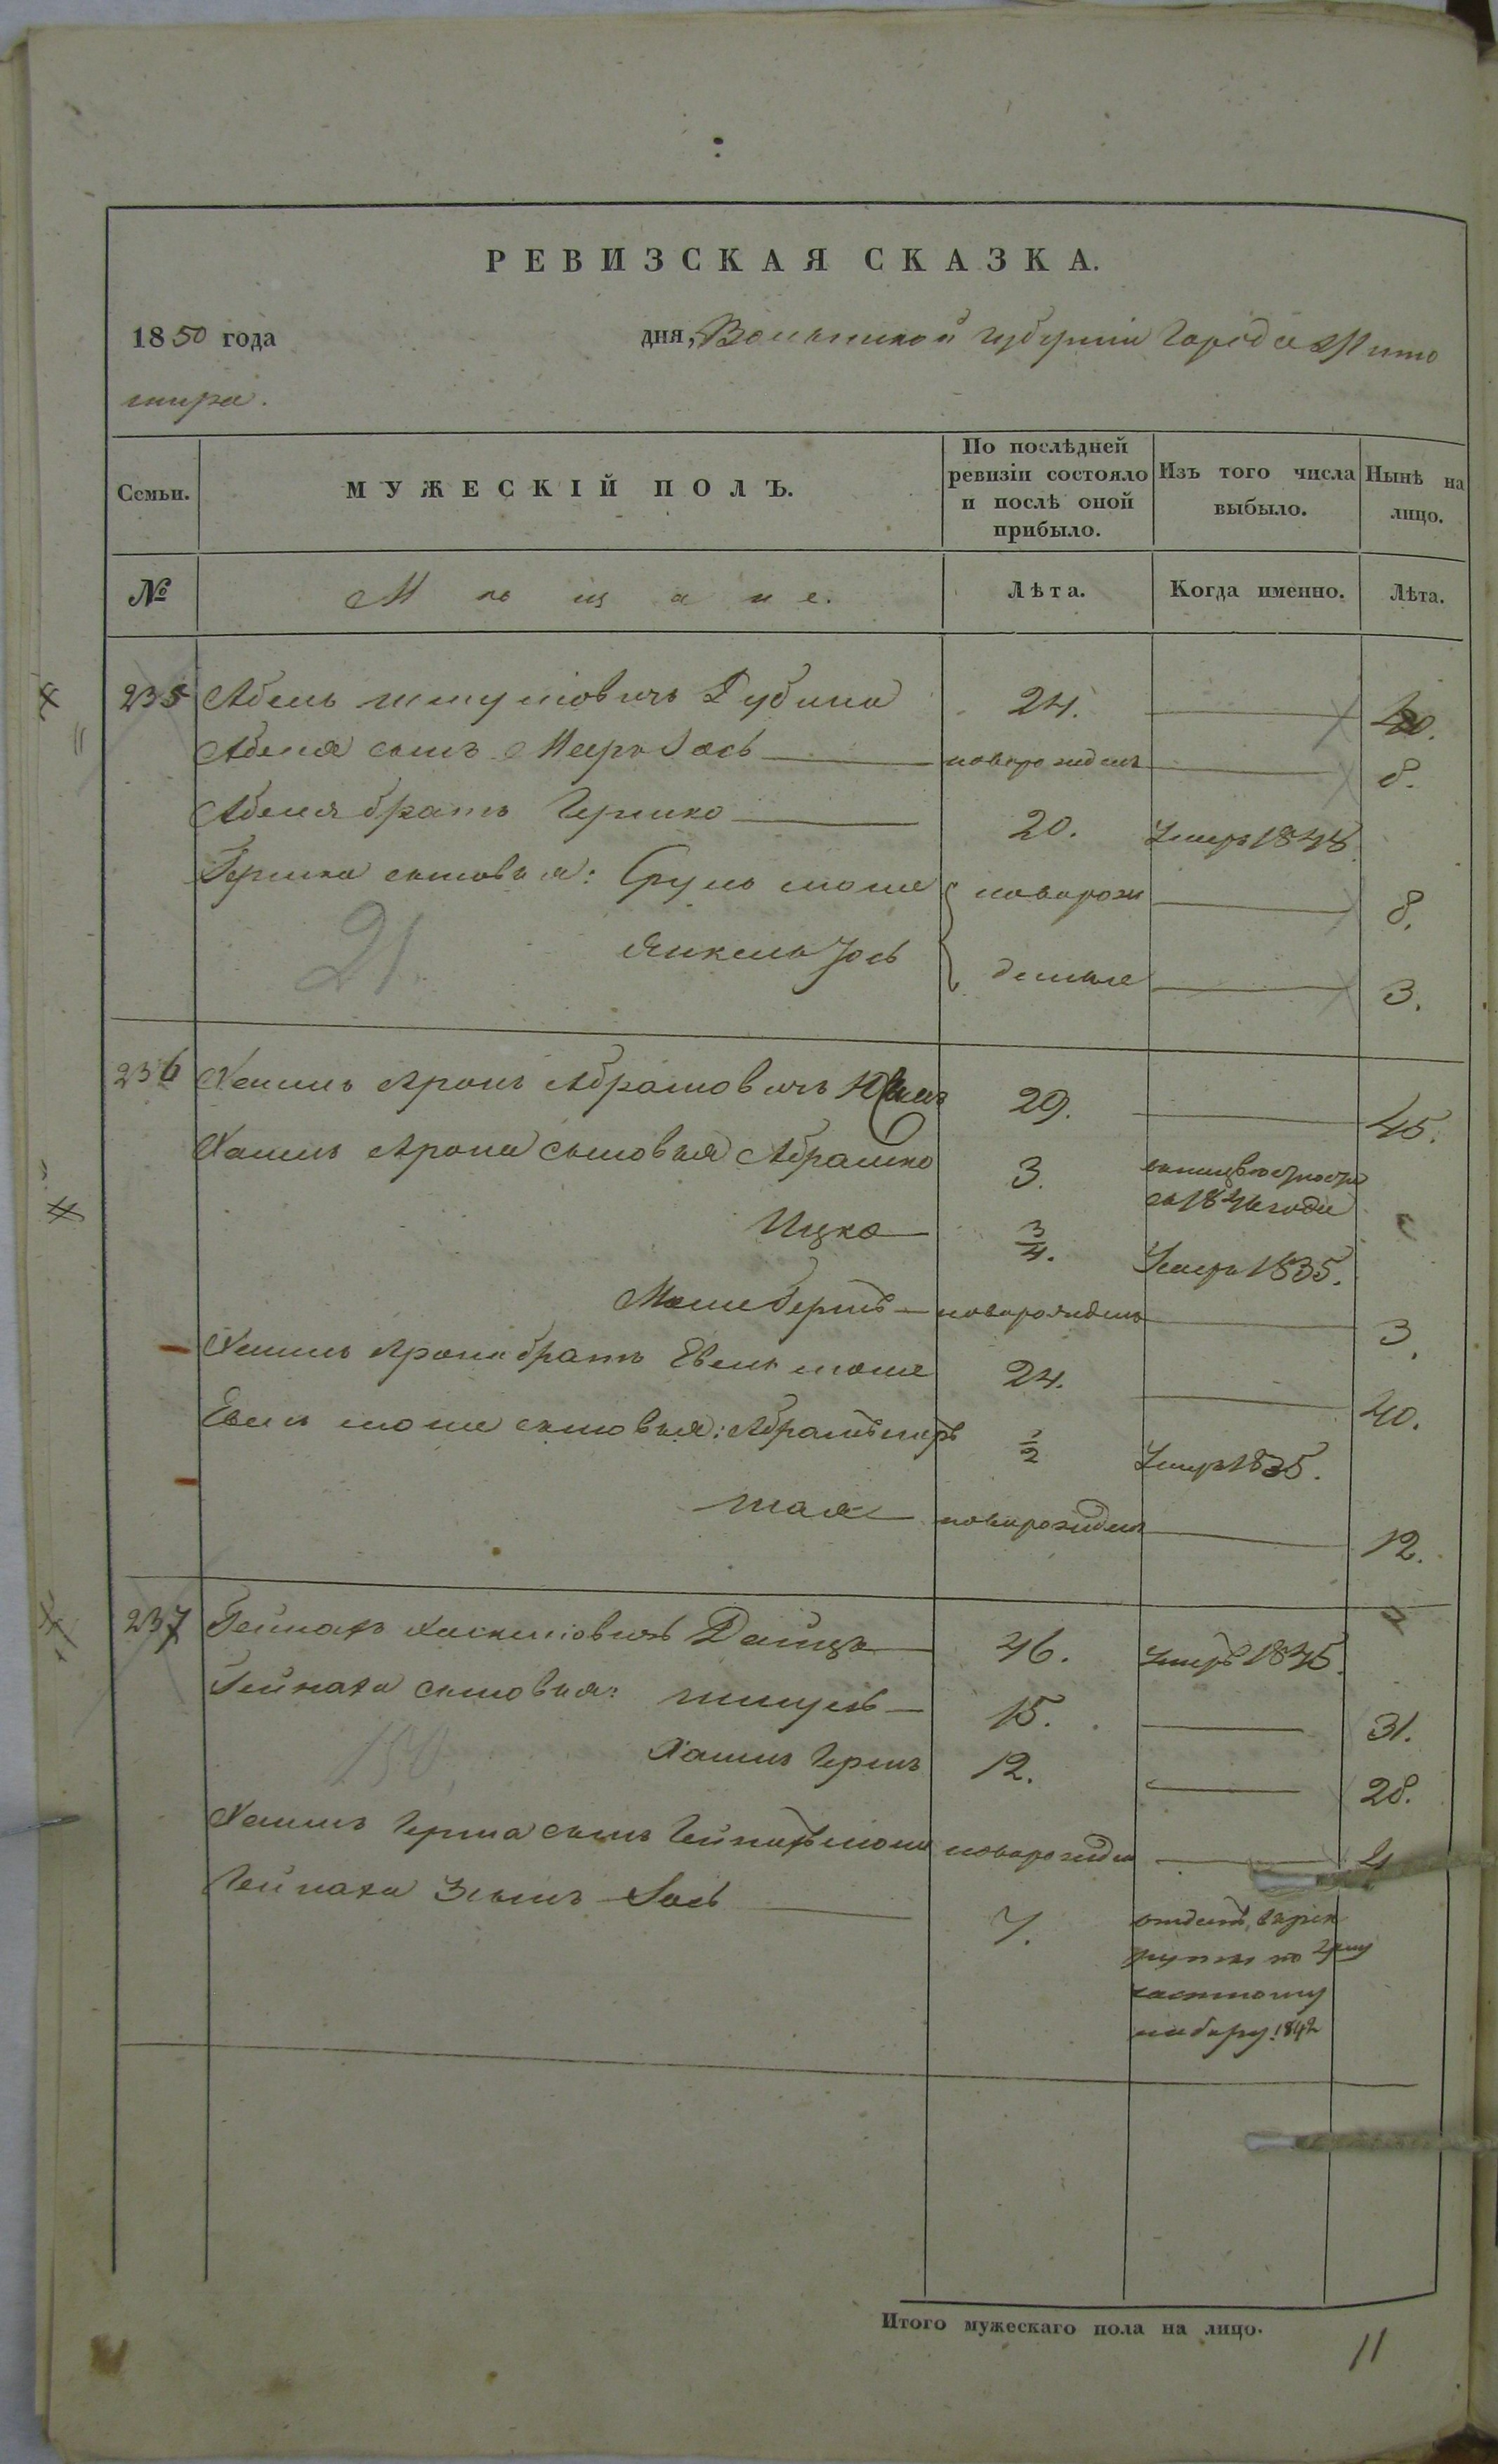 РЕВИЗСКАЯ СКАЗКА.
1850 года дня, Волынской губернiи города Жито
мира.
Семьи. МУЖЕСКІЙ ПОЛЪ. По послѣдней ревизіи состояло и послѣ оной прибыло. Изъ того числа выбыло. Нынѣ на лицо.
№ Мѣщане. Лѣта. Когда именно. Лѣта.
235 Абель Шмулiовичъ Губина 24. 40.
Абеля сынъ Мееръ Iось новорожденъ 8.
Абеля братъ Гершко 20. Умеръ 1848.
Гершка сыновья: Сруль Моше новорож 8.
21. Янкель Iось денные 3.
236 Хаимъ Аронъ Абрамовичъ 29. 45.
Хаимъ Арона сыновья Абрамко 3. 
Ицко 3/4. Умеръ 1835.
Моше Беръ новорожденъ 3.
Хаимъ Арона братъ Евель Моше 24. 40.
Евель Моше сыновья: Абрамъ 1/2 Умеръ 1835.
Шая новорожденъ 12.
237 Гейнахъ Хаскелiовичъ Дайцъ 46. Умеръ 1845.
Гейнаха сыновья: Шмуль 15. 31.
150 Хаимъ Гершъ 12. 28.
Хаимъ Герша сынъ Гейнахъ новорожден
Гейнаха Iось 7. отданъ въ рек
руты по
частному
набору 1842
Итого мужескаго пола на лицо.
11